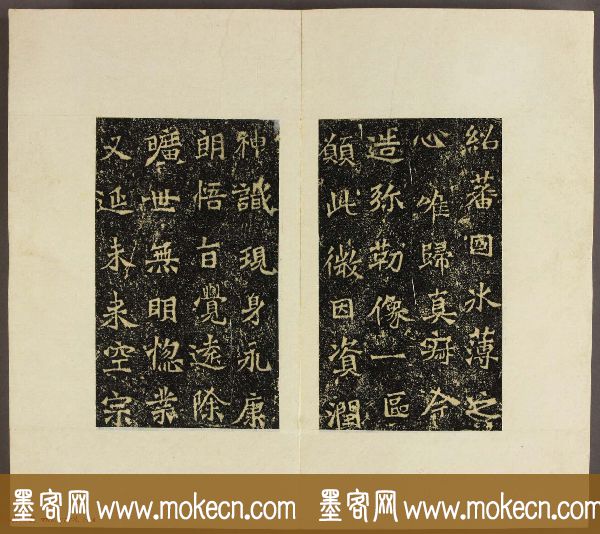 紹蕃國氷薄之
心唯歸真寂今
造弥勒像一區
願此微因資潤
神識現身永康
朗悟旨覺遠除
曠世無明惚業
又延未来空宗
墨客网 www.mokecn.com 墨客网 www.mokecn.com